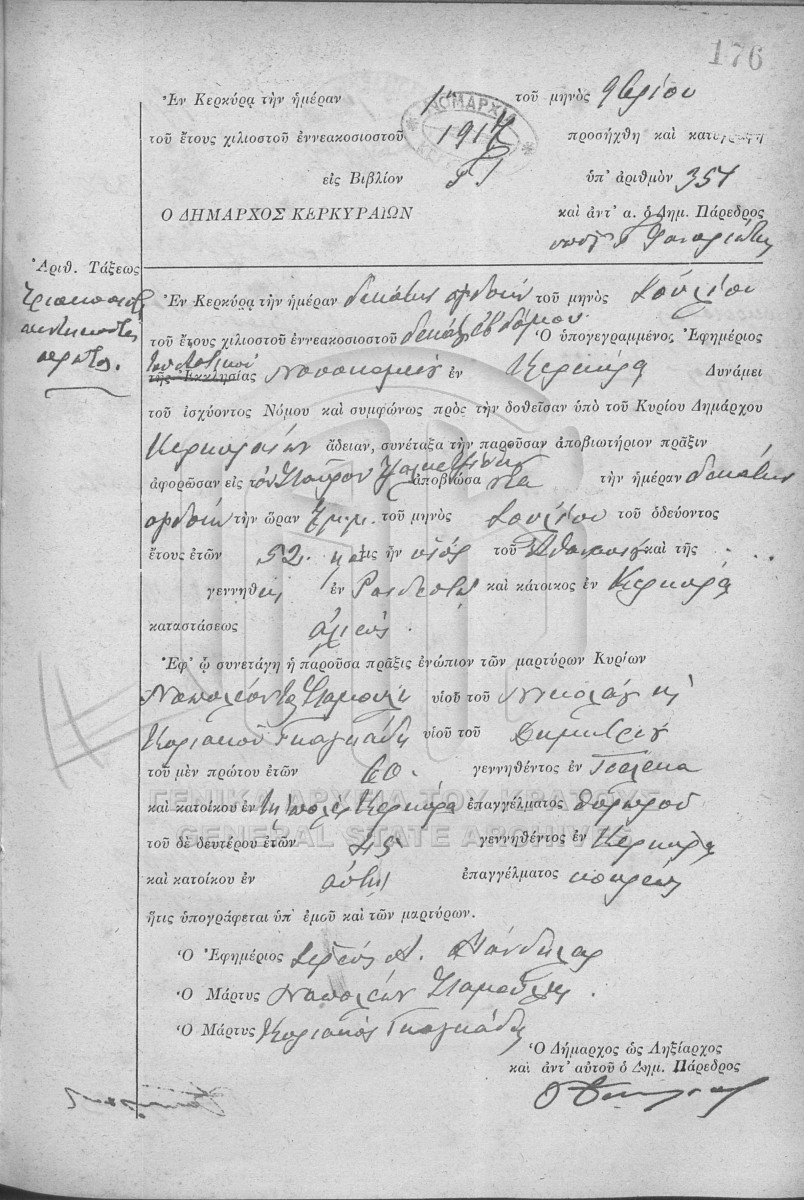 176
Ἐν Κερκύρᾳ τὴν ἡμέραν 1 τοῦ μηνὸς 9βρίου
τοῦ ἔτους χιλιοστοῦ ἐννεακοσιοστοῦ 1917 προσήχθη καὶ κατεγράφη
εἰς Βιβλίον ὑπ' ἀριθμὸν 351
Ο ΔΗΜΑΡΧΟΣ ΚΕΡΚΥΡΑΙΩΝ καὶ ἀντ' α. ὁ Δημ. Πάρεδρος
Ἀριθ. Τάξεως
τριακόσια
πεντήκοντα
πρῶτον.
Ἐν Κερκύρᾳ τὴν ἡμέραν δεκάτην ὀγδόην τοῦ μηνὸς Ἰουλίου
τοῦ ἔτους χιλιοστοῦ ἐννεακοσιοστοῦ δεκάτου ἑβδόμου Ὁ ὑπογεγραμμένος Ἐφημέριος
τῆς Ἐκκλησίας Νοσοκομείου ἐν Κερκύρᾳ Δυνάμει
τοῦ ἰσχύοντος Νόμου καὶ συμφώνως πρὸς τὴν δοθεῖσαν ὑπὸ τοῦ Κυρίου Δημάρχου
Κερκυραίων ἄδειαν, συνέταξα τὴν παροῦσαν ἀποβιωτήριον πρᾶξιν
ἀφορῶσαν εἰς τὸν Σταῦρον ἀποβιώσαντα τὴν ἡμέραν δεκάτην
ὀγδόην τὴν ὥραν 7 μ.μ. τοῦ μηνὸς Ἰουλίου τοῦ ὁδεύοντος
ἔτους ἐτῶν 52 τις ἦν υἱὸς τοῦ Ἀθανασίου καὶ τῆς . . .
γεννηθεὶς ἐν Ραιδεστῷ καὶ κάτοικος ἐν Κερκύρᾳ
καταστάσεως ἁλιεύς.
Ἐφ' ᾧ συνετάγη ἡ παροῦσα πρᾶξις ἐνώπιον τῶν μαρτύρων Κυρίων
Ναπολέοντος Σταμούλη υἱοῦ τοῦ Νικολάου κ
Κυριακοῦ Γκαγκάδη υἱοῦ τοῦ Δημητρίου
τοῦ μὲν πρώτου ἐτῶν 60. γεννηθέντος ἐν
καὶ κατοίκου ἐν Κερκύρᾳ ἐπαγγέλματος θυρωροῦ
ΓΕΝΙΚΑ ΑΡΧΕΙΑ ΤΟΥ ΚΡΑΤΟΥΣ
GENERAL STATE ARCHIVES
τοῦ δὲ δευτέρου ἐτῶν 45 γεννηθέντος ἐν Κερκύρᾳ
καὶ κατοίκου ἐν αὐτῇ ἐπαγγέλματος κουρεύς
ἥτις ὑπογράφεται ὑπ' ἐμοῦ καὶ τῶν μαρτύρων.
Ὁ Ἐφημέριος Ἱερεὺς Α.
Ὁ Μάρτυς Ναπολέων Σταμούλης.
Ὁ Μάρτυς Κυριακὸς Γκαγκάδης
Ὁ Δήμαρχος ὡς Ληξίαρχος
καὶ ἀντ' αὐτοῦ ὁ Δημ. Πάρεδρος